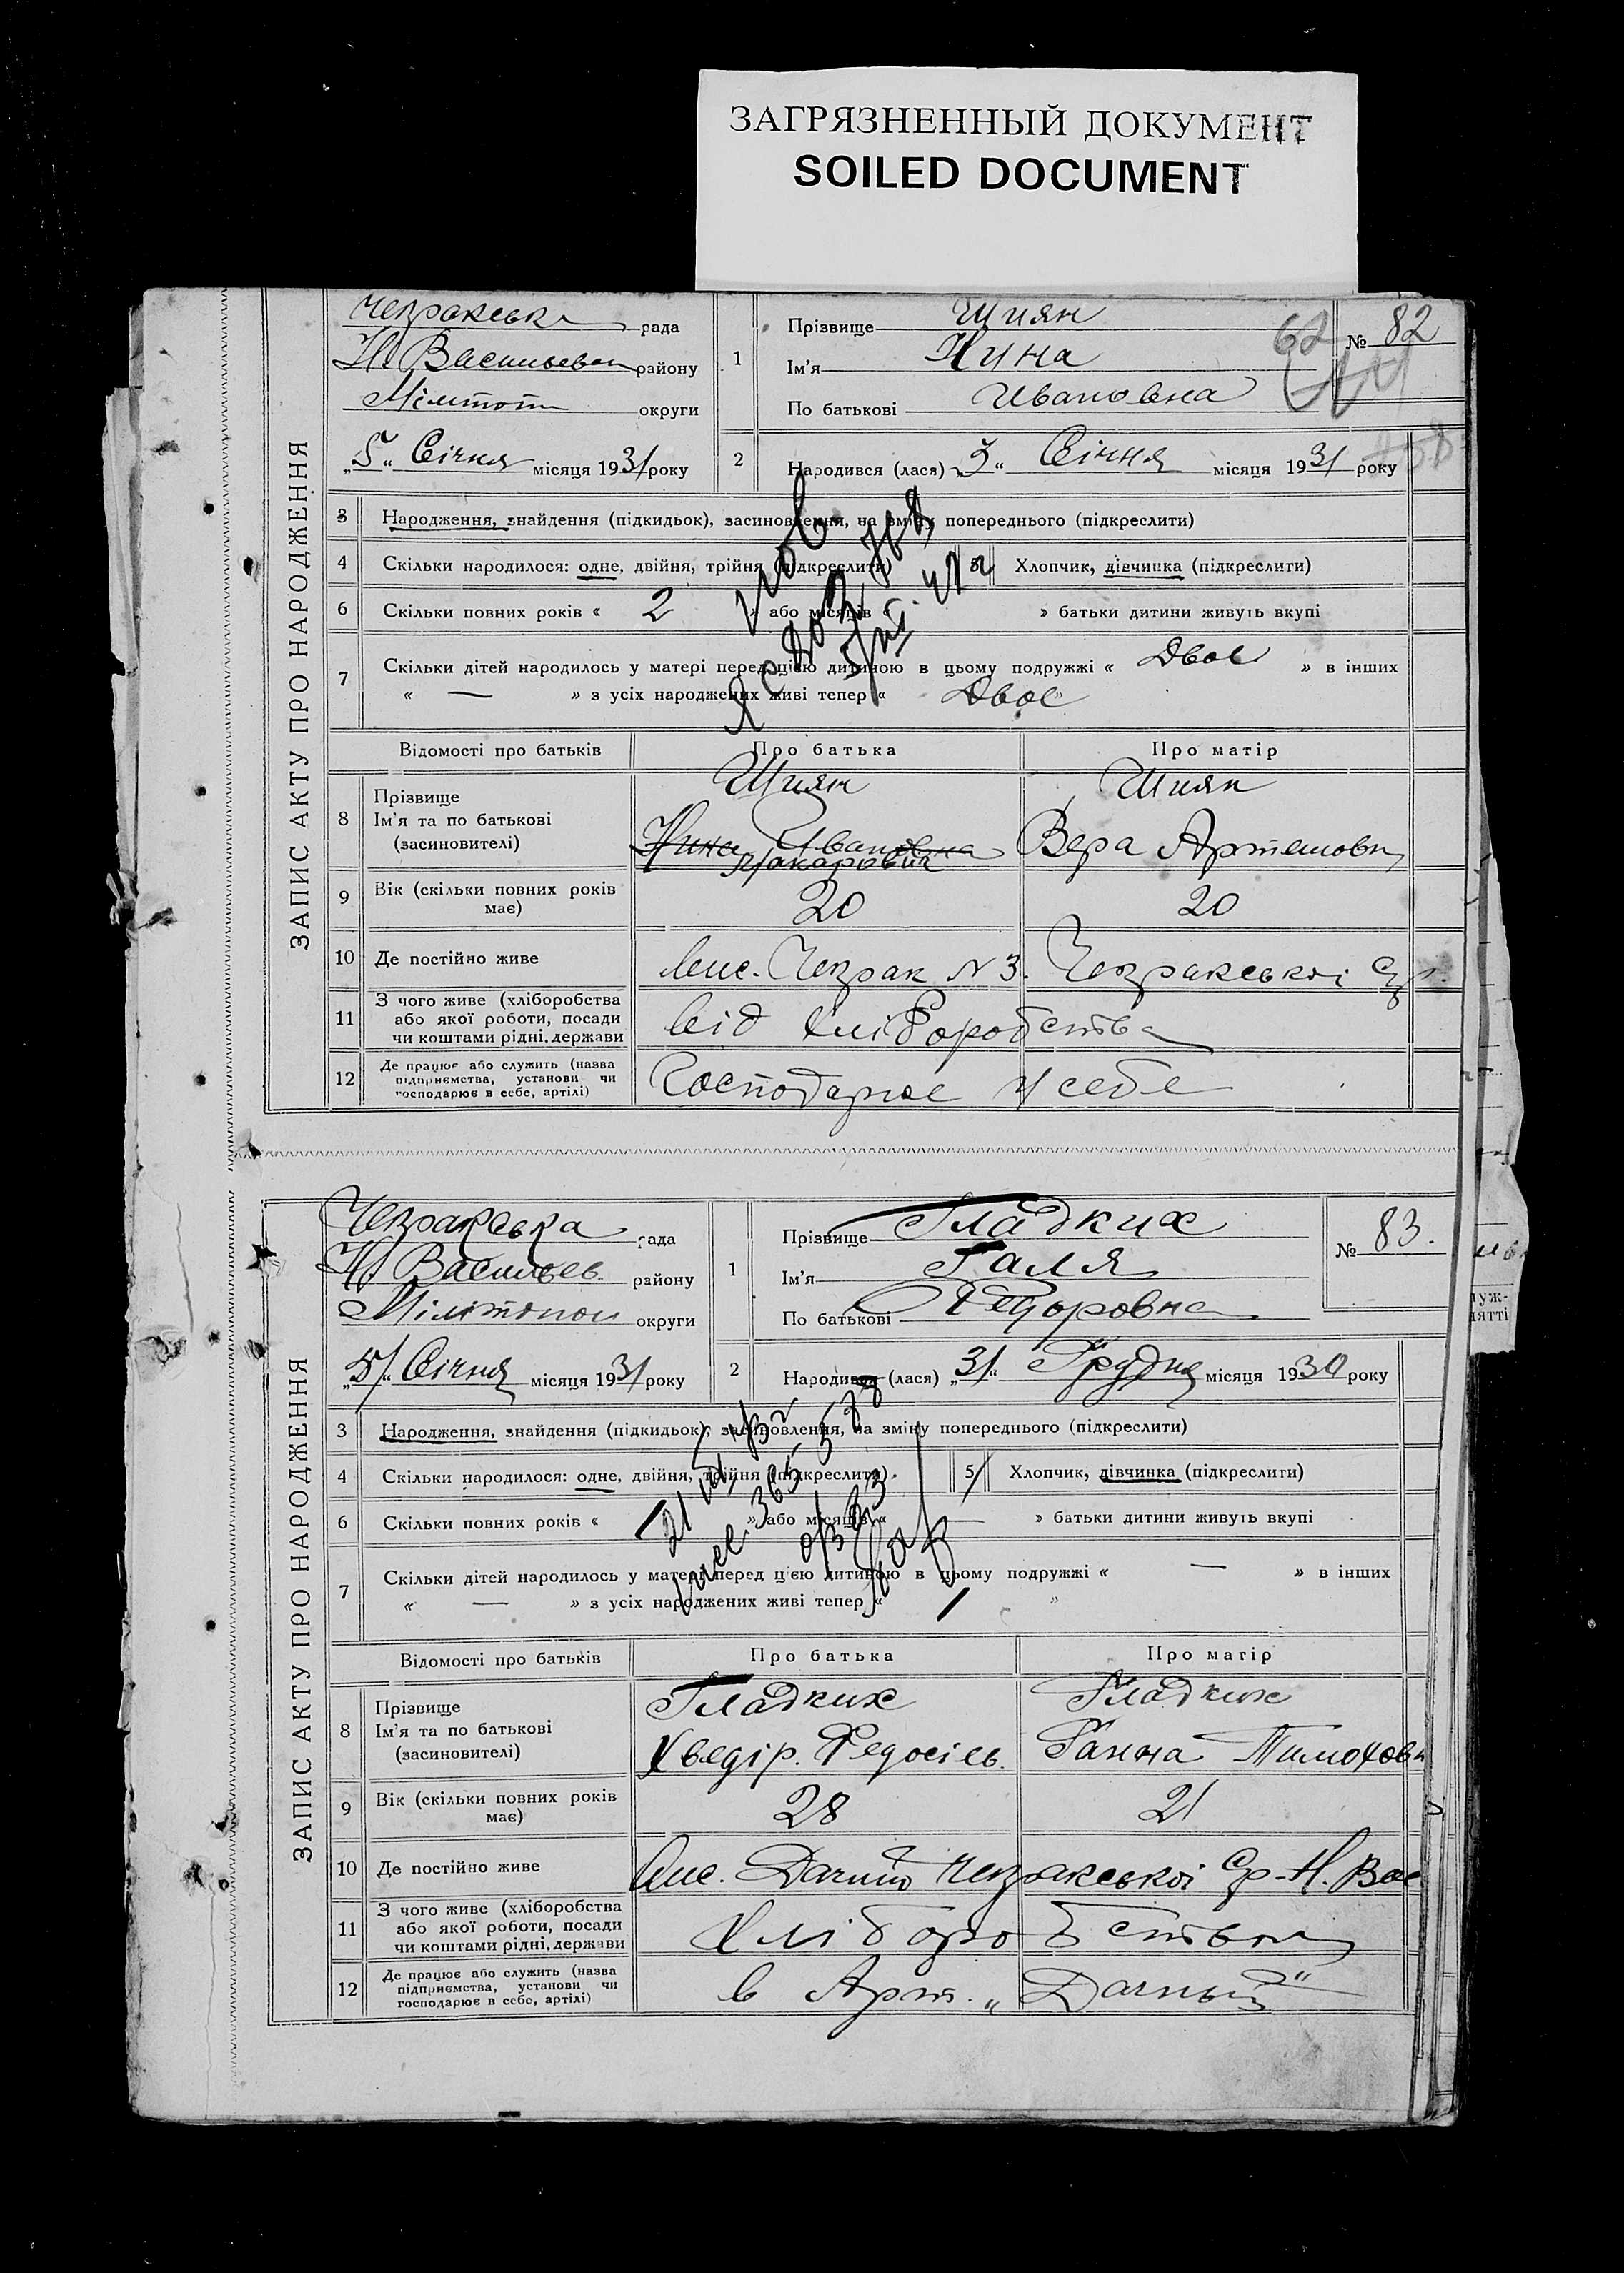 ЗАГРЯЗНЕННЫЙ ДОКУМЕНТ
SOILED DOCUMENT
ЗАПИС АКТУ ПРО НАРОДЖЕННЯ
Чезракська рада
района
округи
„5“ Січня місяця 1931 року
1
Прізвище Шиян
Ім'я Нина
По батькові Ивановна
62
№ 82
2
Народився (лася) „3“ Січня місяця 1931 року
3 Народження, знайдення (підкидьок), засиновлення, на зміну попереднього (підкреслити)
4 Скільки народилося: одне, двійня, трійня (підкреслити) 5 Хлопчик, дівчинка (підкреслити)
6 Скільки повних років « 2 » або місяців « » батьки дитини живуть вкупі
7 Скільки дітей народилось у матері перед цією дитиною в цьому подружжі « Двое » в інших
« — » з усіх народжених живі тепер « Двое »
Відомості про батьків Про батька Про матір
8 Прізвище
Ім'я та по батькові
(засновителі)
Шиян Шиян
Нина Ивановна Вера Артемовн
9 Вік (скільки повних років має) 20 20
10 Де постійно живе Чезрак N 3. Чезракської
11 З чого живе (хліборобства або якої роботи, посади чи коштами рідні, держави від хліборобства
12 Де працює або служить (назва підприємства, установи чи господарює в себе, артілі) Господарює у себе
ЗАПИС АКТУ ПРО НАРОДЖЕННЯ
Чезракська рада
Н. Васильев. району
округи
„5“ Січня місяця 1931 року
1
Прізвище Гладких
Ім'я Галя
По батькові Федоровна
№ 83.
2
Народився (лася) „31“ Грудня місяця 1930 року
3 Народження, знайдення (підкидьок), засиновлення, на зміну попереднього (підкреслити)
4 Скільки народилося: одне, двійня, трійня (підкреслити) 5 Хлопчик, дівчинка (підкреслити)
6 Скільки повних років « 1 » або місяців « — » батьки дитини живуть вкупі
7 Скільки дітей народилось у матері перед цією дитиною в цьому подружжі « — » в інших
« — » з усіх народжених живі тепер « 1 »
Відомості про батьків Про батька Про матір
8 Прізвище
Ім'я та по батькові
(засновителі)
Гладких Гладких
Хведір. Федосіев. Ганна Тимоховн
9 Вік (скільки повних років має) 28 21
10 Де постійно живе Чезракської Ср. Н. Вас
11 З чого живе (хліборобства або якої роботи, посади чи коштами рідні, держави Хліборобства
12 Де працює або служить (назва підприємства, установи чи господарює в себе, артілі) в Арт. „Дачный“